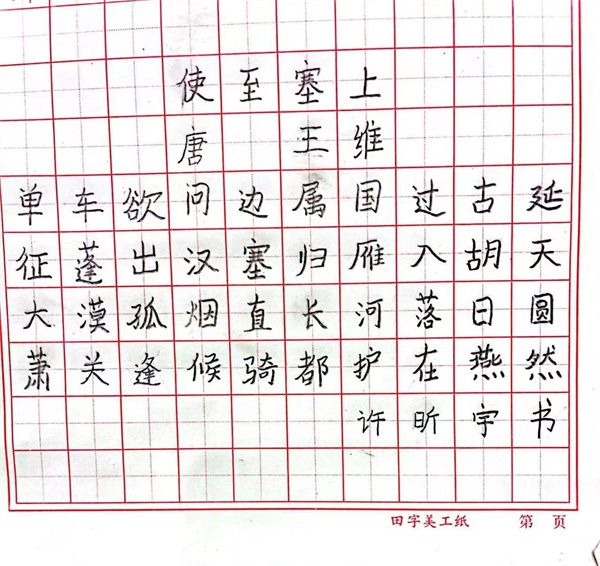 使至塞上
唐 王维
单车欲问边属国过古延
征蓬出汉塞归雁入胡天
大漠孤烟直长河落日圆
萧关逢候骑都护在燕然
许昕宇书
田字美工纸 第 页